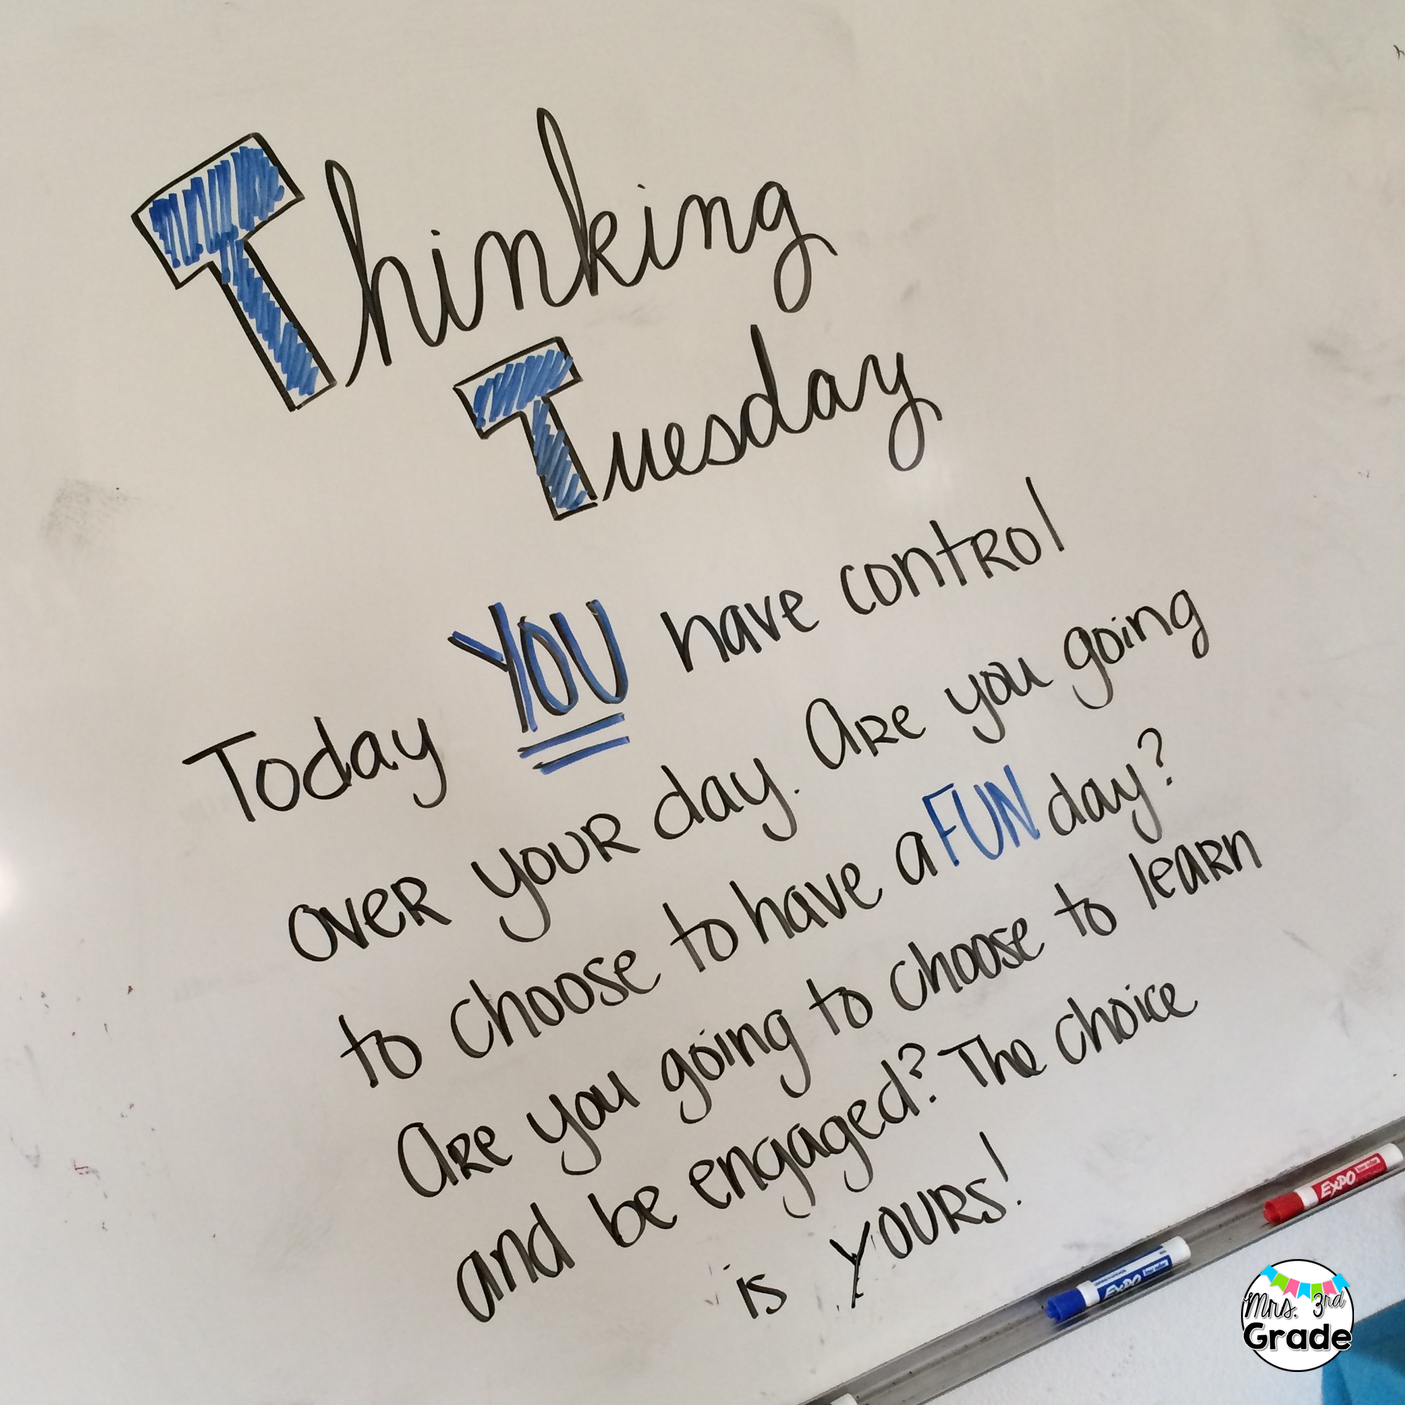 Thinking
Tuesday
Today YOU have control
over your day. Are you going
to choose to have a FUN day?
Are you going to choose to learn
and be engaged? The choice
is YOURS!
EXPO
EXPO
Mrs. 3rd
Grade